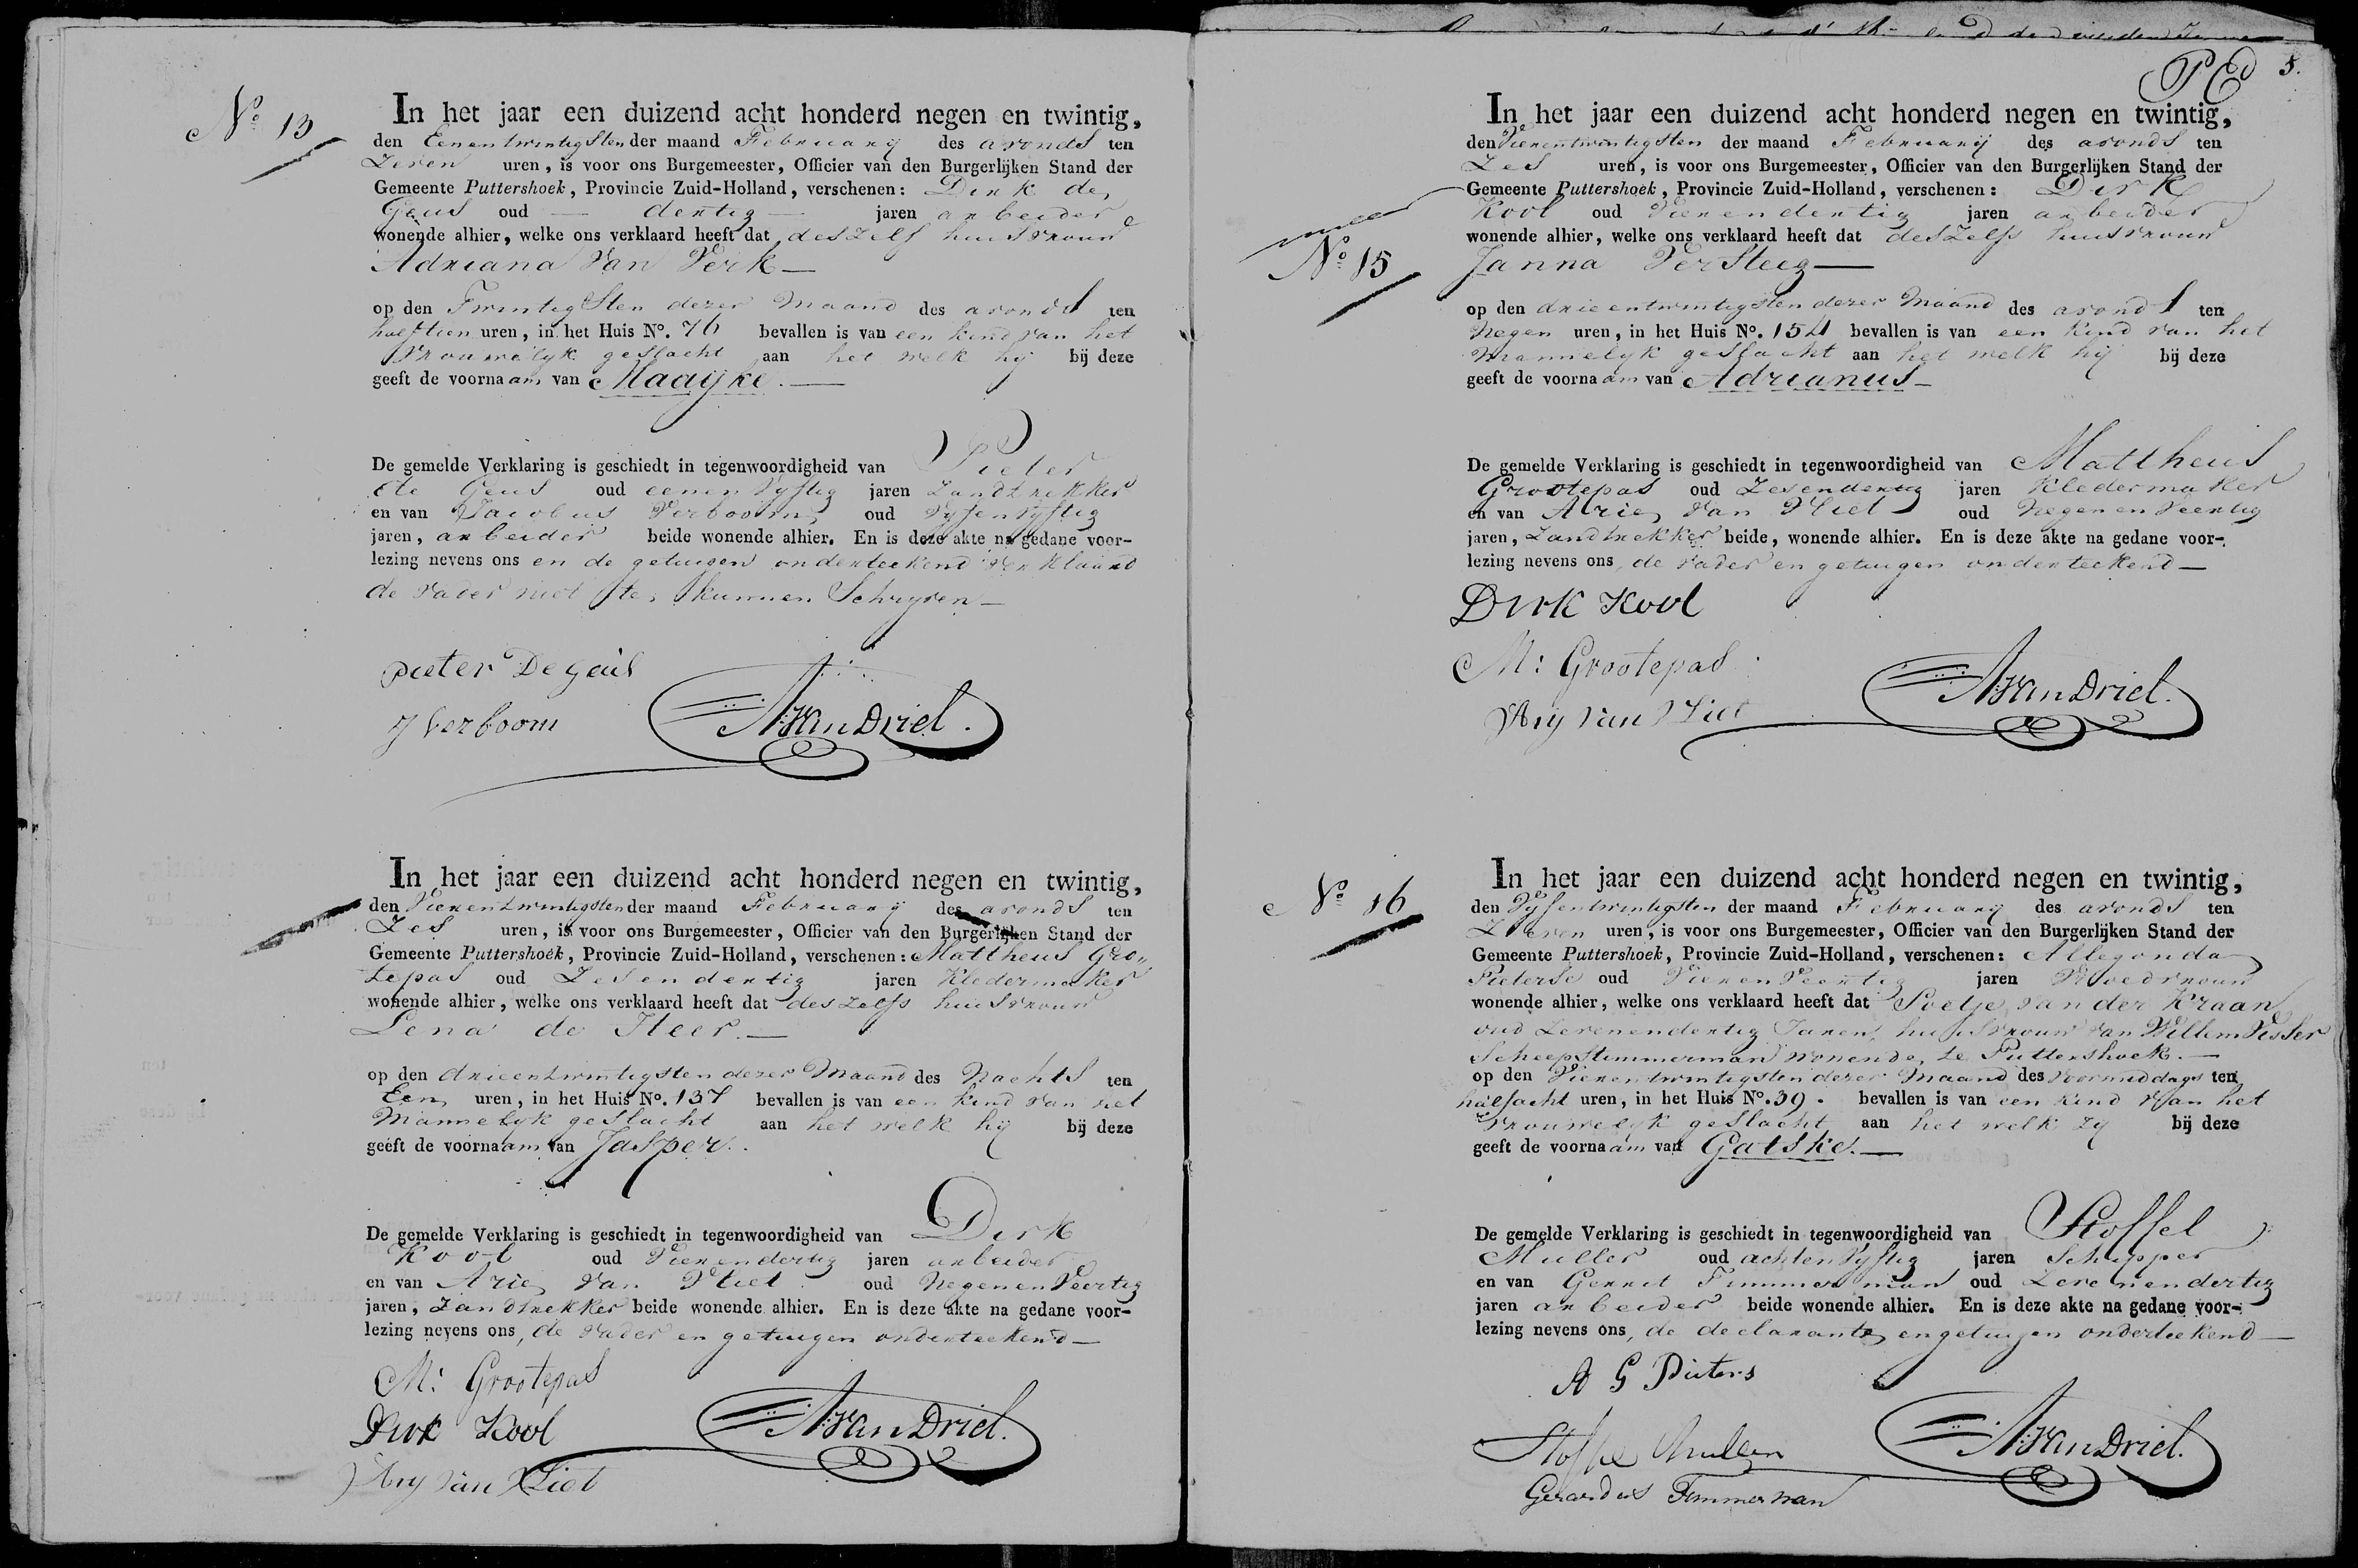 No 13
In het jaar een duizend acht honderd negen en twintig,
den Eenentwintigsten der maand February des avonds ten
Zeven uren, is voor ons Burgemeester, Officier van den Burgerlijken Stand der
Gemeente Puttershoek, Provincie Zuid-Holland, verschenen: Dirk de
Geus oud — dertig — jaren arbeider
wonende alhier, welke ons verklaard heeft dat deszelfs huisvrouw
Adriana van Perk —
op den Twintigsten dezer maand des avonds ten
half tien uren, in het Huis No. 76 bevallen is van een kind van het
vrouwelyk geslacht aan het welk hy bij deze
geeft de voornaam van Maaijke. —
De gemelde Verklaring is geschiedt in tegenwoordigheid van Pieter
de Geus oud eenenvyftig jaren Zandtrekker
en van Jacobus Verboom oud vyfenvyftig
jaren, arbeider beide wonende alhier. En is deze akte na gedane voor-
lezing nevens ons en de getuigen onderteekend verklaard
de vader niet te kunnen Schryven —
pieter De geus
J Verboom
A van Driel.
In het jaar een duizend acht honderd negen en twintig,
den Vierentwintigsten der maand February des avonds ten
Zes uren, is voor ons Burgemeester, Officier van den Burgerlijken Stand der
Gemeente Puttershoek, Provincie Zuid-Holland, verschenen: Mattheus Gro„
tepas oud Zesendertig jaren Kledermaker
wonende alhier, welke ons verklaard heeft dat deszelfs huisvrouw
Lena de Heer. —
op den drieentwintigsten dezer maand des Nachts ten
Een uren, in het Huis No. 137 bevallen is van een kind van het
Mannelyk geslacht aan het welk hy bij deze
geeft de voornaam van Jasper.
De gemelde Verklaring is geschiedt in tegenwoordigheid van Dirk
Kool oud Vierendertig jaren arbeider
en van Arie van Vliet oud Negenenveertig
jaren, Zandtrekker beide wonende alhier. En is deze akte na gedane voor-
lezing nevens ons, de vader en getuigen onderteekend —
M: Grootepas
Dirk Kool
Ary van Vliet
A van Driel.
5.
In het jaar een duizend acht honderd negen en twintig,
den Vierentwintigsten der maand February des avonds ten
Zes uren, is voor ons Burgemeester, Officier van den Burgerlijken Stand der
Gemeente Puttershoek, Provincie Zuid-Holland, verschenen: Dirk
Kool oud Vierendertig jaren arbeider
wonende alhier, welke ons verklaard heeft dat deszelfs huisvrouw
No 15
Janna Versteeg —
op den drieentwintigsten dezer maand des avonds ten
Negen uren, in het Huis No. 154 bevallen is van een kind van het
Mannelyk geslacht aan het welk hij bij deze
geeft de voornaam van Adrianus —
De gemelde Verklaring is geschiedt in tegenwoordigheid van Mattheus
Grootepas oud Zesendertig jaren Kledermaker
en van Arie van Vliet oud Negenenveertig
jaren, Zandtrekker beide, wonende alhier. En is deze akte na gedane voor-
lezing nevens ons, de vader en getuigen onderteekend —
Dirk Kool
M: Grootepas
Ary van Vliet
A van Driel.
No 16
In het jaar een duizend acht honderd negen en twintig,
den Vyfentwintigsten der maand February des avonds ten
Zeven uren, is voor ons Burgemeester, Officier van den Burgerlijken Stand der
Gemeente Puttershoek, Provincie Zuid-Holland, verschenen: Allegonda
Pieterse oud Vierenveertig jaren Vroedvrouw
wonende alhier, welke ons verklaard heeft dat Soetje van der Kraan
oud Zevenendertig Jaren, huisvrouw van Willem Visser
Scheepstimmerman wonende te Puttershoek. —
op den Vierentwintigsten dezer maand des voormiddags ten
half acht uren, in het Huis No. 39. bevallen is van een kind van het
vrouwelyk geslacht aan het welk zy bij deze
geeft de voornaam van Gatske. —
De gemelde Verklaring is geschiedt in tegenwoordigheid van Stoffel
Muller oud achtenvyftig jaren Schipper
en van Gerrit Timmerman oud Zevenendertig
jaren arbeider beide wonende alhier. En is deze akte na gedane voor-
lezing nevens ons, de declarante en getuigen onderteekend —
A G Pieters
Stoffel Mullen
Gerardus Timmerman
A van Driel.